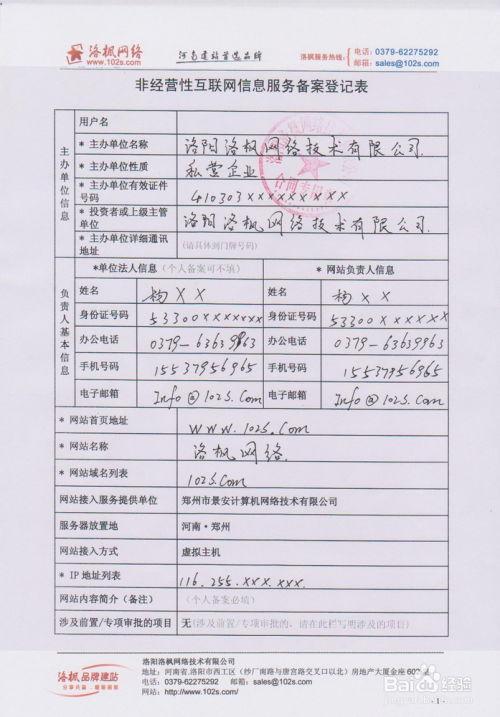 洛枫网络
www.102s.com
河南建站首选品牌
洛枫服务热线:
电话: 0379-62275292
邮箱: sales@102s.com
非经营性互联网信息服务备案登记表
主办单位信息
用户名
* 主办单位名称 洛阳洛枫网络技术有限公司.
* 主办单位性质 私营企业
* 主办单位有效证件号码 410303×××××××××
* 投资者或上级主管单位 洛阳洛枫网络技术有限公司.
* 主办单位详细通讯地址 (请具体到门牌号码)
合同专用章
负责人基本信息
*单位法人信息(个人备案可不填) * 网站负责人信息
姓名 杨×× 姓名 杨××
身份证号码 53300××××××× 身份证号码 53300×××××××
办公电话 0379-63639963 办公电话 0379-63639963
手机号码 15537956965 手机号码 15537956965
电子邮箱 Info@102S.Com 电子邮箱 Info@102S.Com
* 网站首页地址 www.102S.Com
* 网站名称 洛枫网络.
* 网站域名列表 102S.Com
网站接入服务提供单位 郑州市景安计算机网络技术有限公司
服务器放置地 河南·郑州
网站接入方式 虚拟主机
* IP 地址列表 116.255.×××.×××.
网站内容简介(备注) (个人备案必填)
涉及前置/专项审批的项目 无(涉及前置/专项审批的、请在此栏写明涉及的项目)
洛枫品牌建站
洛阳洛枫网络技术有限公司
地址:河南省.洛阳市西工区(纱厂南路与唐宫路交叉口以北)房地产大厦金座 602室
电话: 0379-62275292 邮箱: sales@102s.com
网站: http://www.102s.com/
Baidu 经验
- 1 -